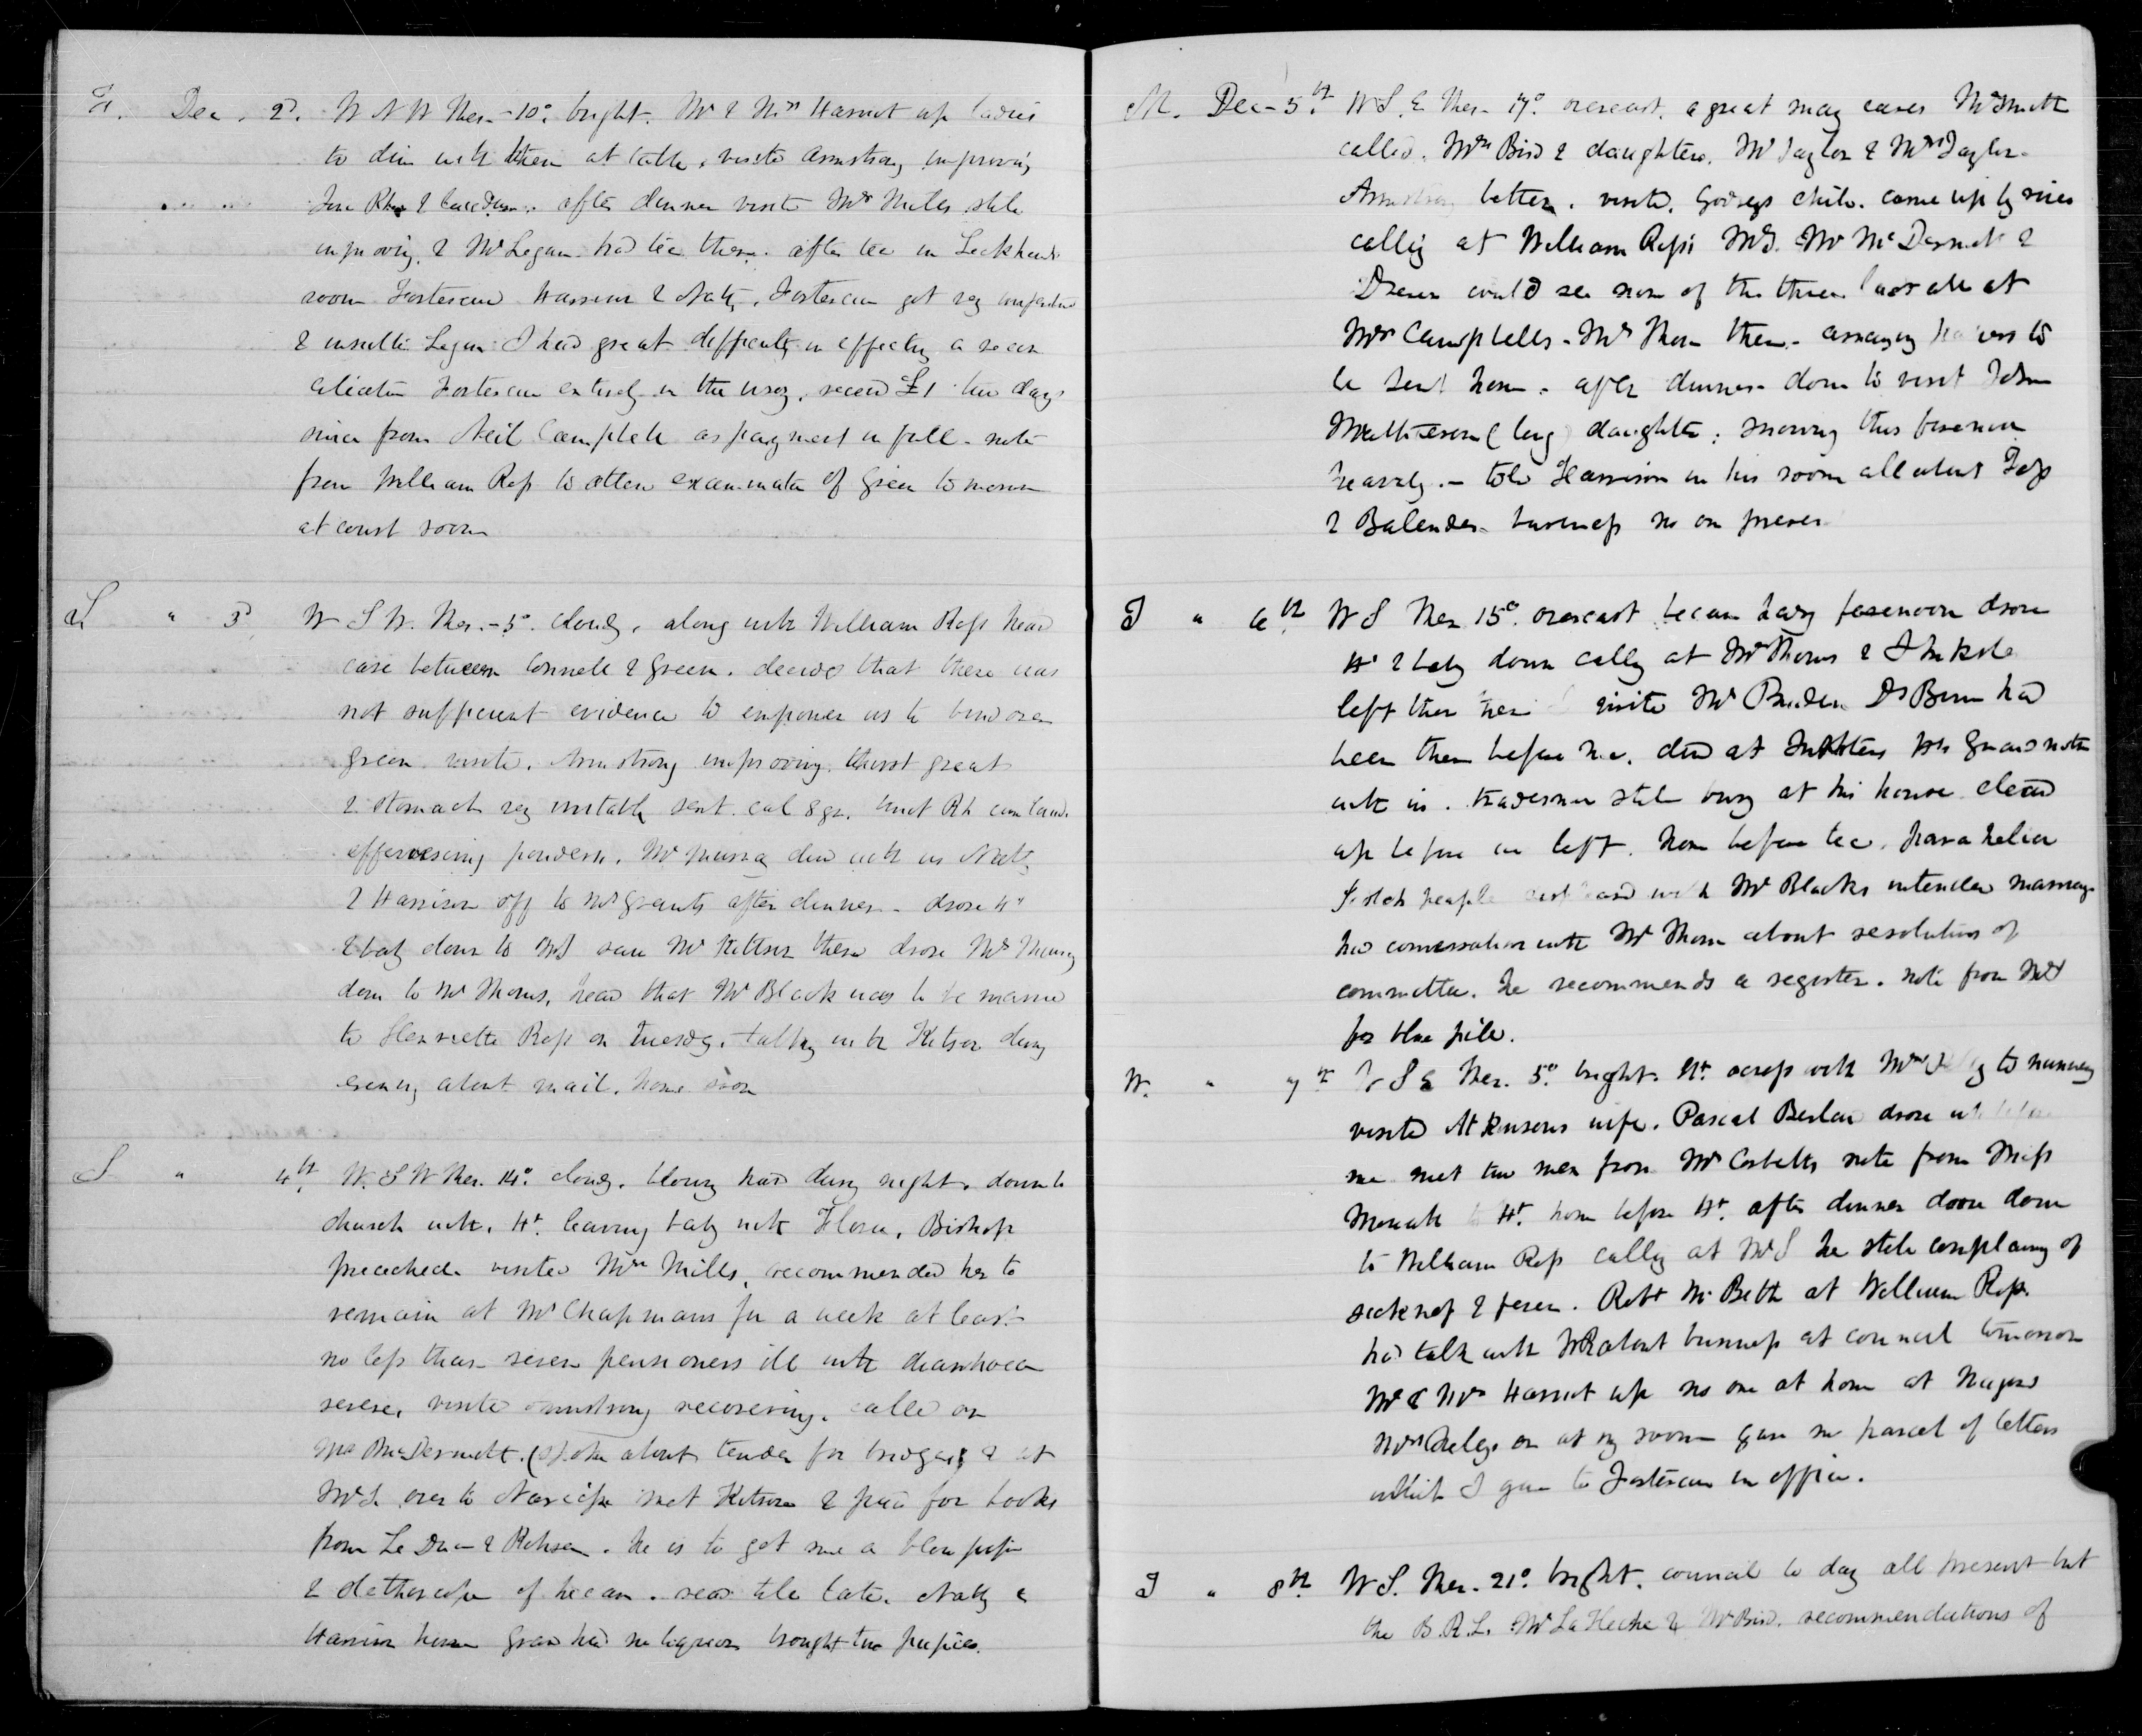 F. Dec. 2d. W N W Ther. -10° bright. Mr & Mrs Harriot up ladies
to din with them at Cath. visite Armstrong improving
after dinner visite Mrs Mills still
improving, & Mr Logan had tea there. after tea in Lockharts
room Fortescue Harrison & Natty. Fortescue got very
& insulte Logan I had great difficulty in effecting a recon
ciliation Fortescue entirely in the wrong. received £1 two days
since from Neil Campbell as payment in full. note
from William Ross to attend examination of Green tomorrow
at court room
S " 3d W S W. Ther. -5°. cloudy. along with William Ross heard
case between Connell & Green. decided that there was
not sufficient evidence to empower us to bind over
Green visite. Armstrong improving. thirst great
& stomach very irritable sent. cal 8 gr. tinct Rh cum laud.
effervescing powders. Mr Murray din with us Natty
& Harrison off to Mr Grants after dinner - drove Ht
& baby down to McD saw Mr Kittson there drove Mr Murray
down to Mr Thoms, heard that Mr Black was to be married
to Henrietta Ross on Tuesdy. talking with Kitson during
evening about mail. home soon
S " 4th. W. S W Ther. 14°. cloudy. blowing hard during night. down to
church with. Ht. leaving baby with Flora. Bishop
preached. visited Mrs Mills, recommended her to
remain at Mr Chapmans for a week at least
no less than seven pensioners ill with diarrhoea
severe, visite Armstrong recovering. calle on
Mr McDermott. (spoke about tender for bridges) & at
McD. over to Narcisse met Kitson & paid for books
from Le Duc & Rohrer. he is to get me a blow pipe
& stethoscope if he can. read till late. Natty &
Harrison home Grant had no liquor brought two puppies.
M. Dec - 5.th W S. E Ther. 17°. overcast. a great many cases Mr Smith
called. Mrs Bird & daughters. Mr Taylor & Mrs Taylor.
Armstrong better. visite. Godseys child. came up by river
calling at William Ross's McD. Mr McDermott &
Drever could see none of the three last all at
Mrs Campbells - Mr Thom there. arranging to
be sent home. after dinner down to visit John
Mathieson (long) daughter; snowing this forenoon
heavily. - told Harrison in his room all about Foss
& Balenden business no one present
T " 6th. W S Ther 15°. overcast became hazy forenoon drove
Ht & baby down calling at Mr Thoms & Inkster
left them there visite Mr Pruden Dr Bunn had
been there before me. din at Inksters Mr Gunns mother
with us. tradesmen still busy at his house cleared
up before we left. home before tea. parahelia
Scotch people with Mr Blacks intended marriage
had conversation with Mr Thom about resolutions of
committee. he recommends a register. note from McD
for blue pill.
W. " 7th W S E Ther. 5°. bright. Ht. across with Mrs to nunnery
visited Atkinsons wife. Pascal Berland drove
me met two men from Mr Corbetts note from Miss
to Ht. home before Ht. after dinner drove down
to William Ross calling at McD he still complaining of
sickness & fever. Robt McBeth at William Ross.
had talk with WR about business at council tomorrow
Mr & Mrs Harriot up no one at home at
Mrs on at my room gave me parcel of letters
which I gave to Fortescue in office.
T " 8th W S. Ther. 21°. bright. council to day all present but
the B.R.L. Mr LaFleche & Mr Bird. recommendations of